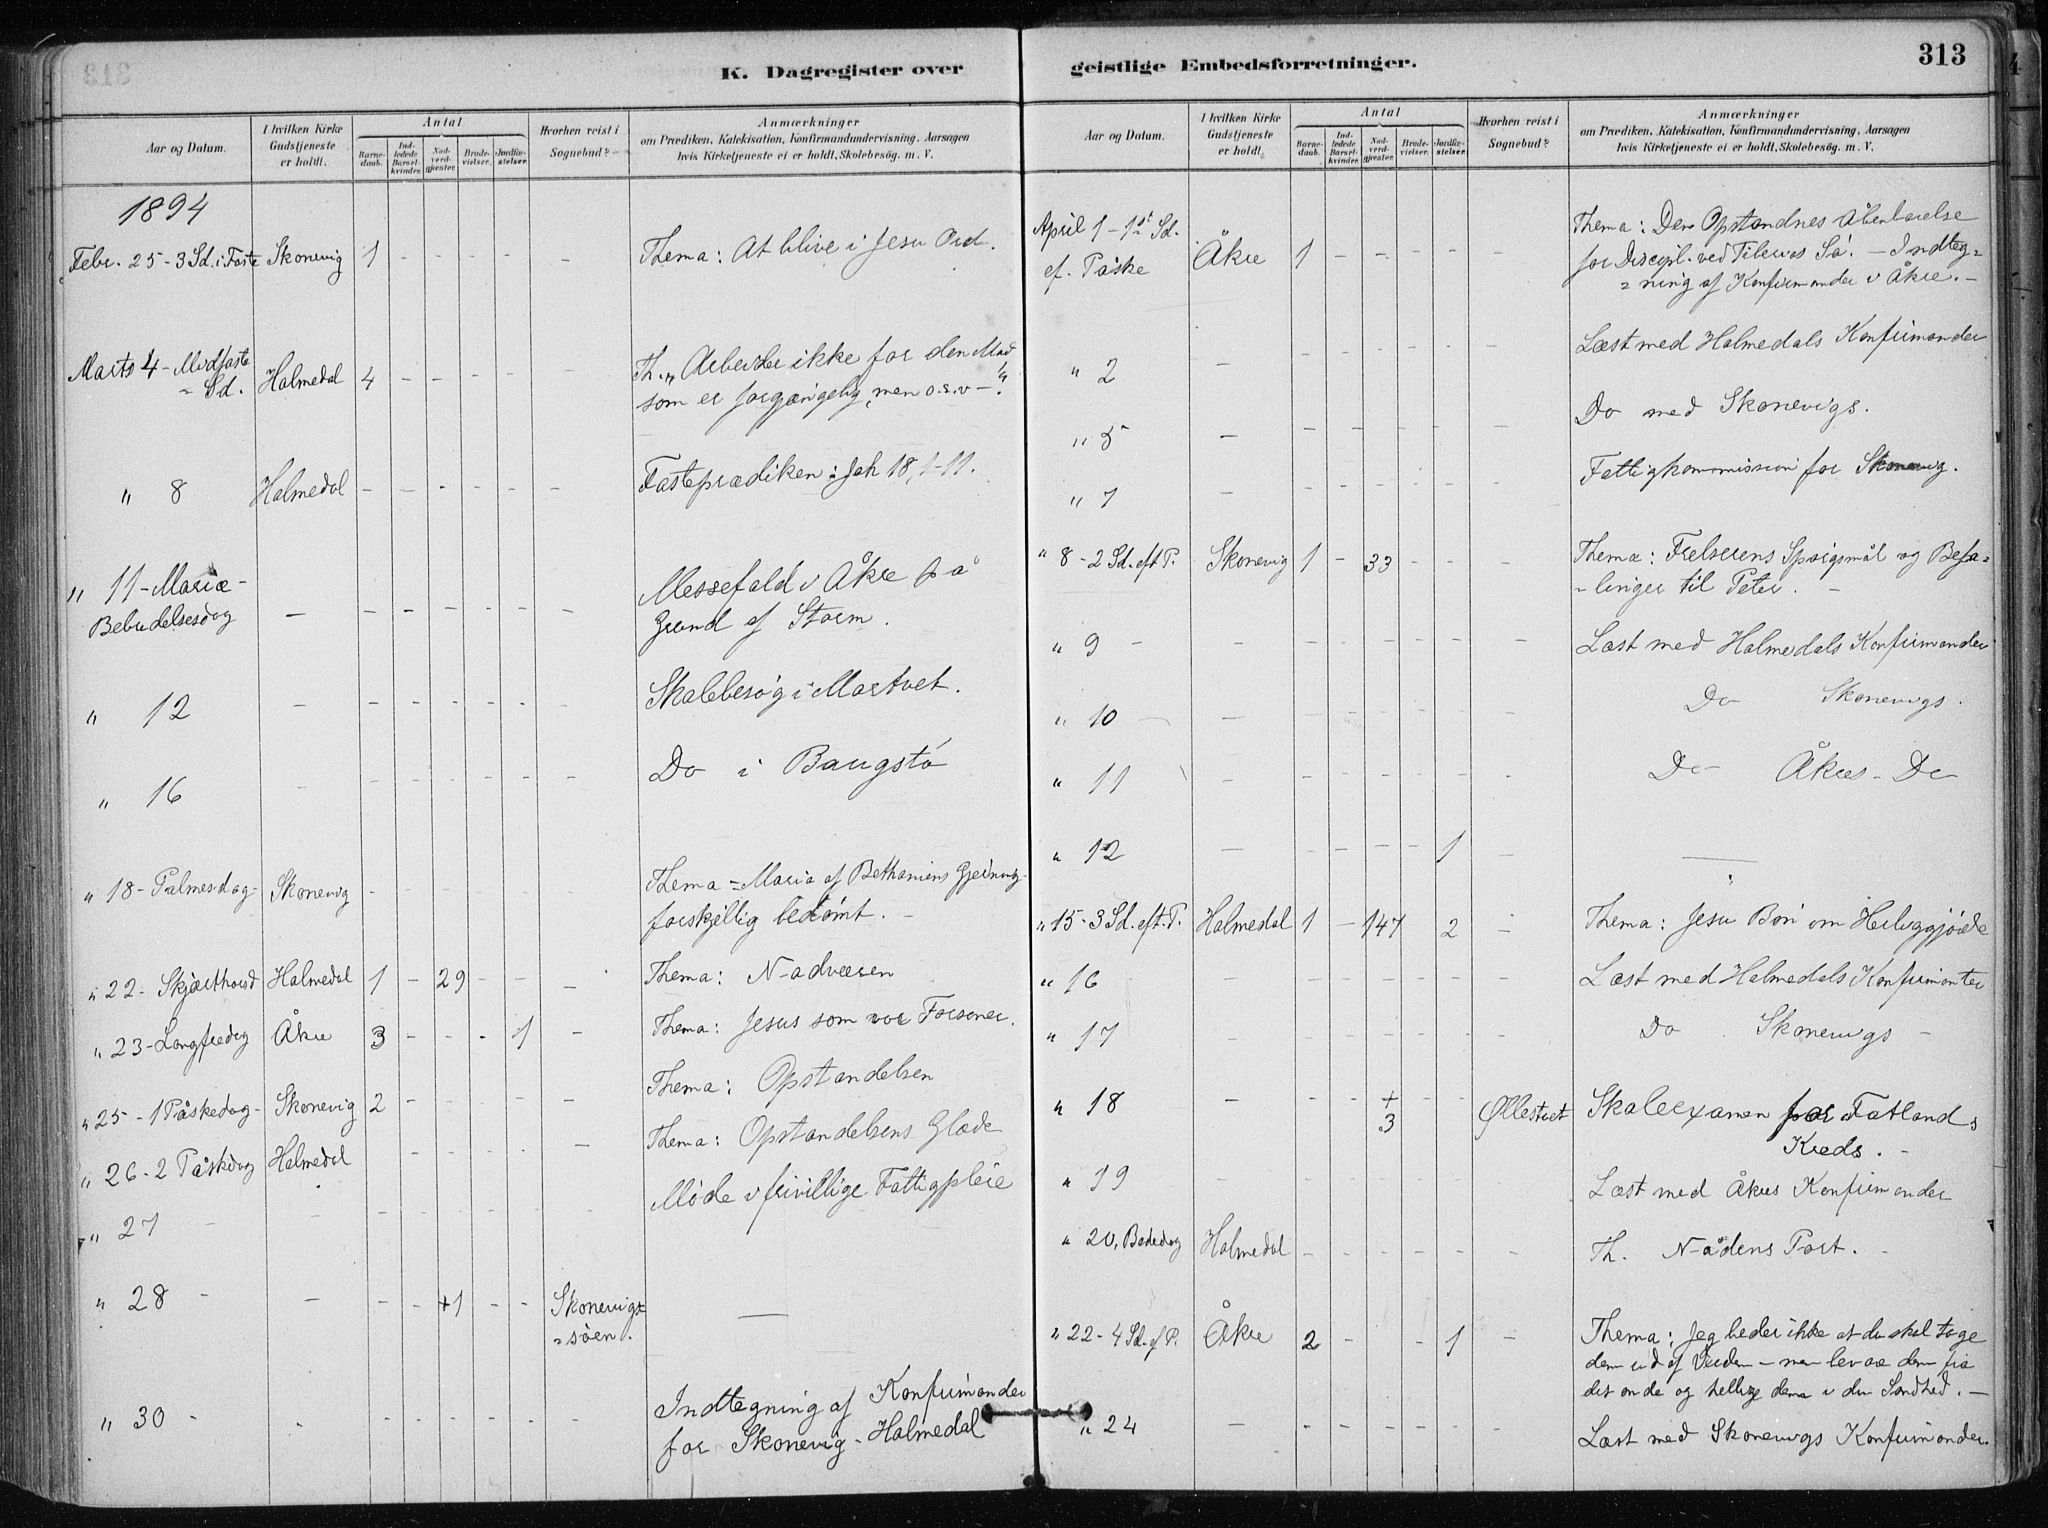 K. Dagregister over
Aar og Datum.
I hvilken Kirke Gudstjeneste er holdt.
Antal
Barnedaab.
Indledede Barselkvinder.
Nadverdgjester.
Brudevielser.
Jordfæstelser.
Hvorhen reist i Sognebud?
Anmærkninger
om Prædiken, Katekisation, Konfirmandundervisning, Aarsagen
hvis Kirketjeneste ei er holdt, Skolebesög. m. V.
1894
Febr. 25 - 3 Sd. i Faste Skonevig 1 - - - - - Thema: At blive i Jesu Ord.
Marts 4 - Midfaste
= Sd. Holmedal 4 - - - - - Th. „Arbeider ikke for den Mad
som er forgjængelig, men o.s.v -“.
" 8 Holmedal - - - - - - Fasteprædiken: Joh 18, 1-11.
" 11 - Mariæ-
Bebudelsesdag - - - - - - - Messefald i Åkre på
Grund af Storm.
" 12 - - - - - - - Skolebesøg i Martvet.
" 16 - - - - - - - Do i Baugstø
" 18 - Palmesdag - Skonevig - - - - - - Thema = Maria af Bethaniens Gjerning
forskjellig bedømt. -
" 22 - Skjærthorsd Holmedal 1 - 29 - - - Thema: Nadveren
" 23 - Langfredag Åkre 3 - - - 1 - Thema: Jesus som vor Forsoner.
" 25 - 1 Påskedag - Skonevig 2 - - - - Thema: Opstandelsen
" 26 - 2 Påskdag Holmedal - - - - - Thema: Opstandelsens Glæde
" 27 - - - - - - - Møde i frivillige Fattigpleie
" 28 - - - - +1 - - Skonevigs=
=søen. —
" 30 - - - - - - - - Indtegning af Konfirmander
for Skonevig - Holmedal
geistlige Embedsforretninger.
313
Aar og Datum.
I hvilken Kirke Gudstjeneste er holdt.
Antal
Barnedaab.
Indledede Barselkvinder.
Nadverdgjester.
Brudevielser.
Jordfæstelser.
Hvorhen reist i Sognebud?
Anmærkninger
om Prædiken, Katekisation, Konfirmandundervisning, Aarsagen
hvis Kirketjeneste ei er holdt, Skolebesög. m. V.
April 1 - 1ste Sd.
ef. Påske Åkre 1 - - - - - Thema: Den Opstandnes Åbenbarelse
for Discipl. ved Tiberias Sø. - Indteg=
=ning af Konfirmander i Åkre. -
" 2 - - - - - - - Læst med Holmedals Konfirmander
" 5 - - - - - - - Do med Skonevigs.
" 7 - - - - - - - Fattigkommission for Skonevig.
" 8 - 2 Sd. eft P. Skonevig 1 - 33 - - - Thema: Frelserens Spørgsmål og Befa=
=linger til Peter. -
" 9 - - - - - - - - Læst med Holmedals Konfirmander
" 10 - - - - - - - - Do Skonevigs.
" 11 - - - - - - - Do Åkres - Do
" 12 - - - - - 1 - —
" 15 - 3 Sd. eft. P. Holmedal 1 - 147 2 - Thema: Jesu Bøn om Helliggjørelse
" 16 - - - - - - - Læst med Holmedals Konfirmanter
" 17 - - - - - - - Do Skonevigs -
" 18 - - - + 3 - - Øllestvet Skoleexamen for Fatlands
Kreds. -
" 19 - - - - - - - Læst med Åkres Konfirmander
" 20, Bededag Holmedal - - - - - - Th. Nådens Port. -
" 22 - 4 Sd. ef P. Åkre 2 - - - 1 - Thema: Jeg beder ikke at du skal tage
dem ud af Verden - men bevare dem fra
det onde og hellige dem i din Sandhed. -
" 24 - - - - - - - Læst med Skonevigs Konfirmander.